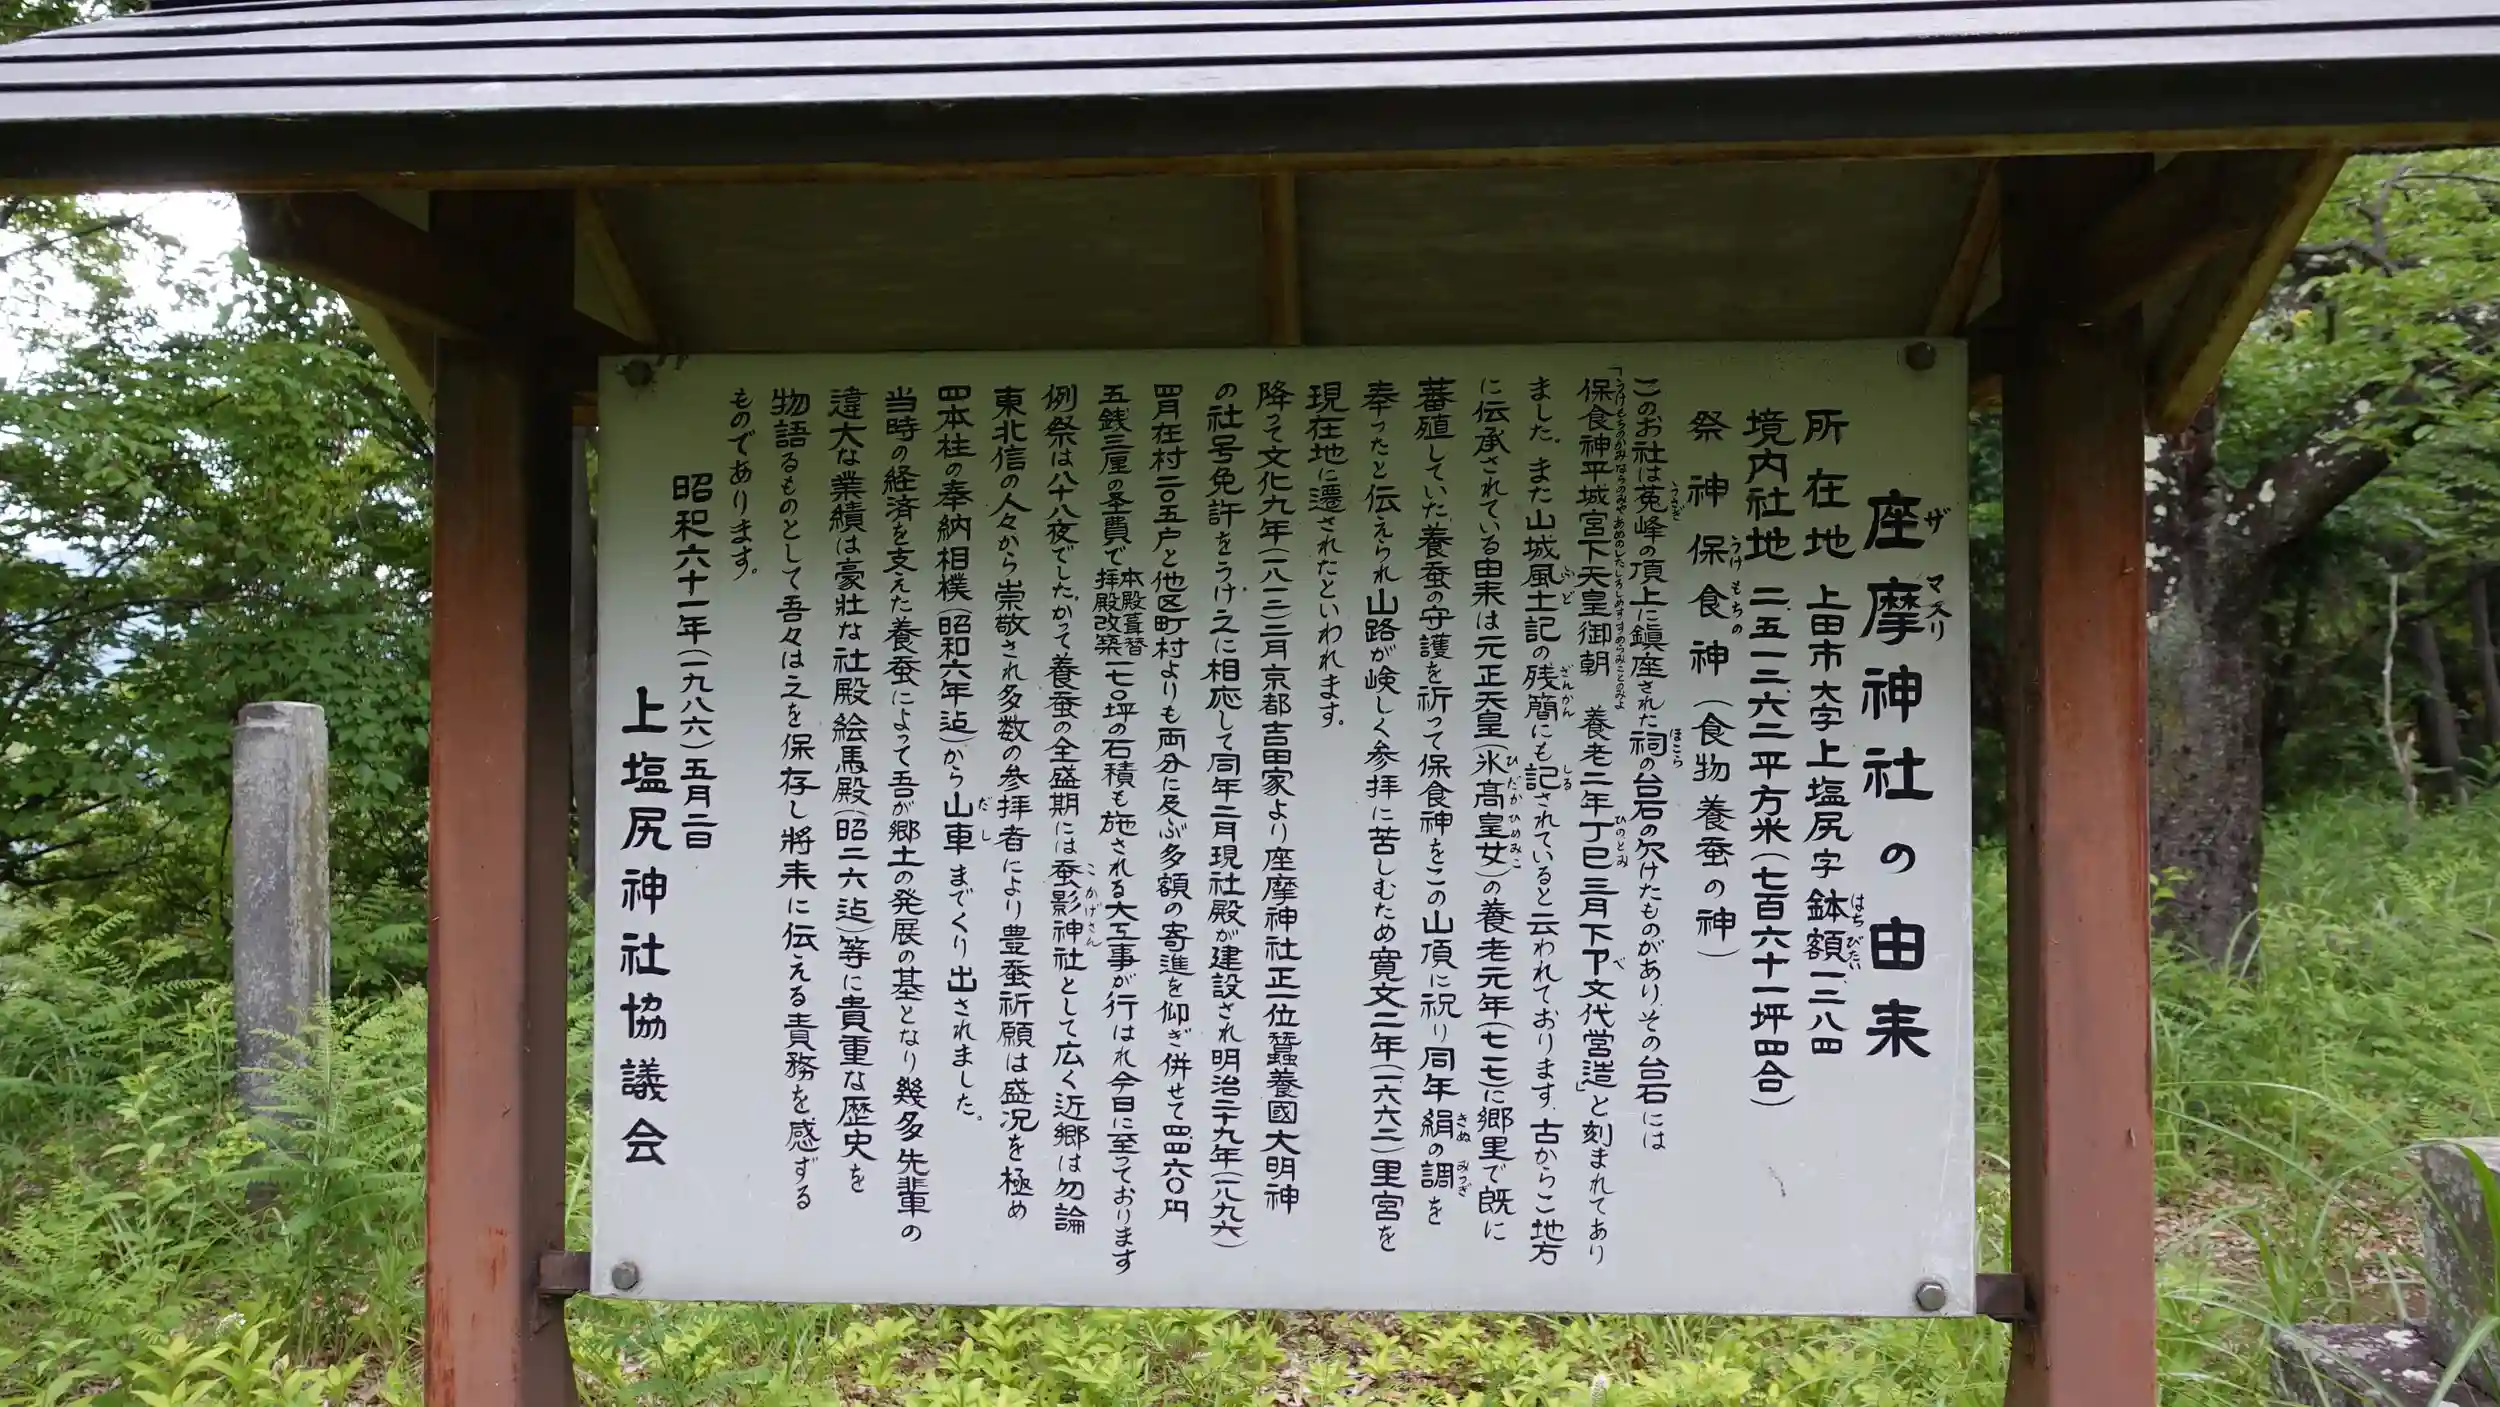 座摩神社の由来
所在地 上田市大字上塩尻字鉢額一、三八四
境内社地 二、五一三、六二平方米(七百六十一坪四合)
祭神 保食神(食物養蚕の神)
このお社は菟峰の頂上に鎮座された祠の台石の欠けたものがあり、その台石には
「保食神平城宮下天皇御朝 養老二年丁巳三月下卩文代営造」と刻まれてあり
ました。また山城風土記の残簡にも記されていると云われております。古からこ地方
に伝承されている由来は元正天皇(氷高皇女)の養老元年(七一七)に郷里で既に
蕃殖していた、養蚕の守護を祈って保食神をこの山頂に祝り同年絹の調を
奉ったと伝えられ山路が峻しく参拝に苦しむため寛文二年(一六六二)里宮を
現在地に遷されたといわれます。
降って文化九年(一八一二)二月京都吉田家より座摩神社正一位蠶養國大明神
の社号免許をうけ、之に相応して同年二月現社殿が建設され明治二十九年(一八九六)
四月在村二〇五戸と他区町村よりも両分に及ぶ多額の寄進を仰ぎ併せて四、四六〇円
五銭三厘の圣費で本殿葺替拝殿改築一七〇坪の石積も施される大工事が行はれ今日に至っております
例祭は八十八夜でした。かつて養蚕の全盛期には蚕影神社として広く近郷は勿論
東北信の人々から崇敬され多数の参拝者により豊蚕祈願は盛況を極め
四本柱の奉納相撲(昭和六年迠)から山車までくり出されました。
当時の経済を支えた養蚕によって吾が郷土の発展の基となり幾多先輩の
違大な業績は豪壮な社殿絵馬殿(昭二六迠)等に貴重な歴史を
物語るものとして吾々は之を保存し將来に伝える責務を感ずる
ものであります。
昭和六十一年(一九八六)五月二日
上塩尻神社協議会